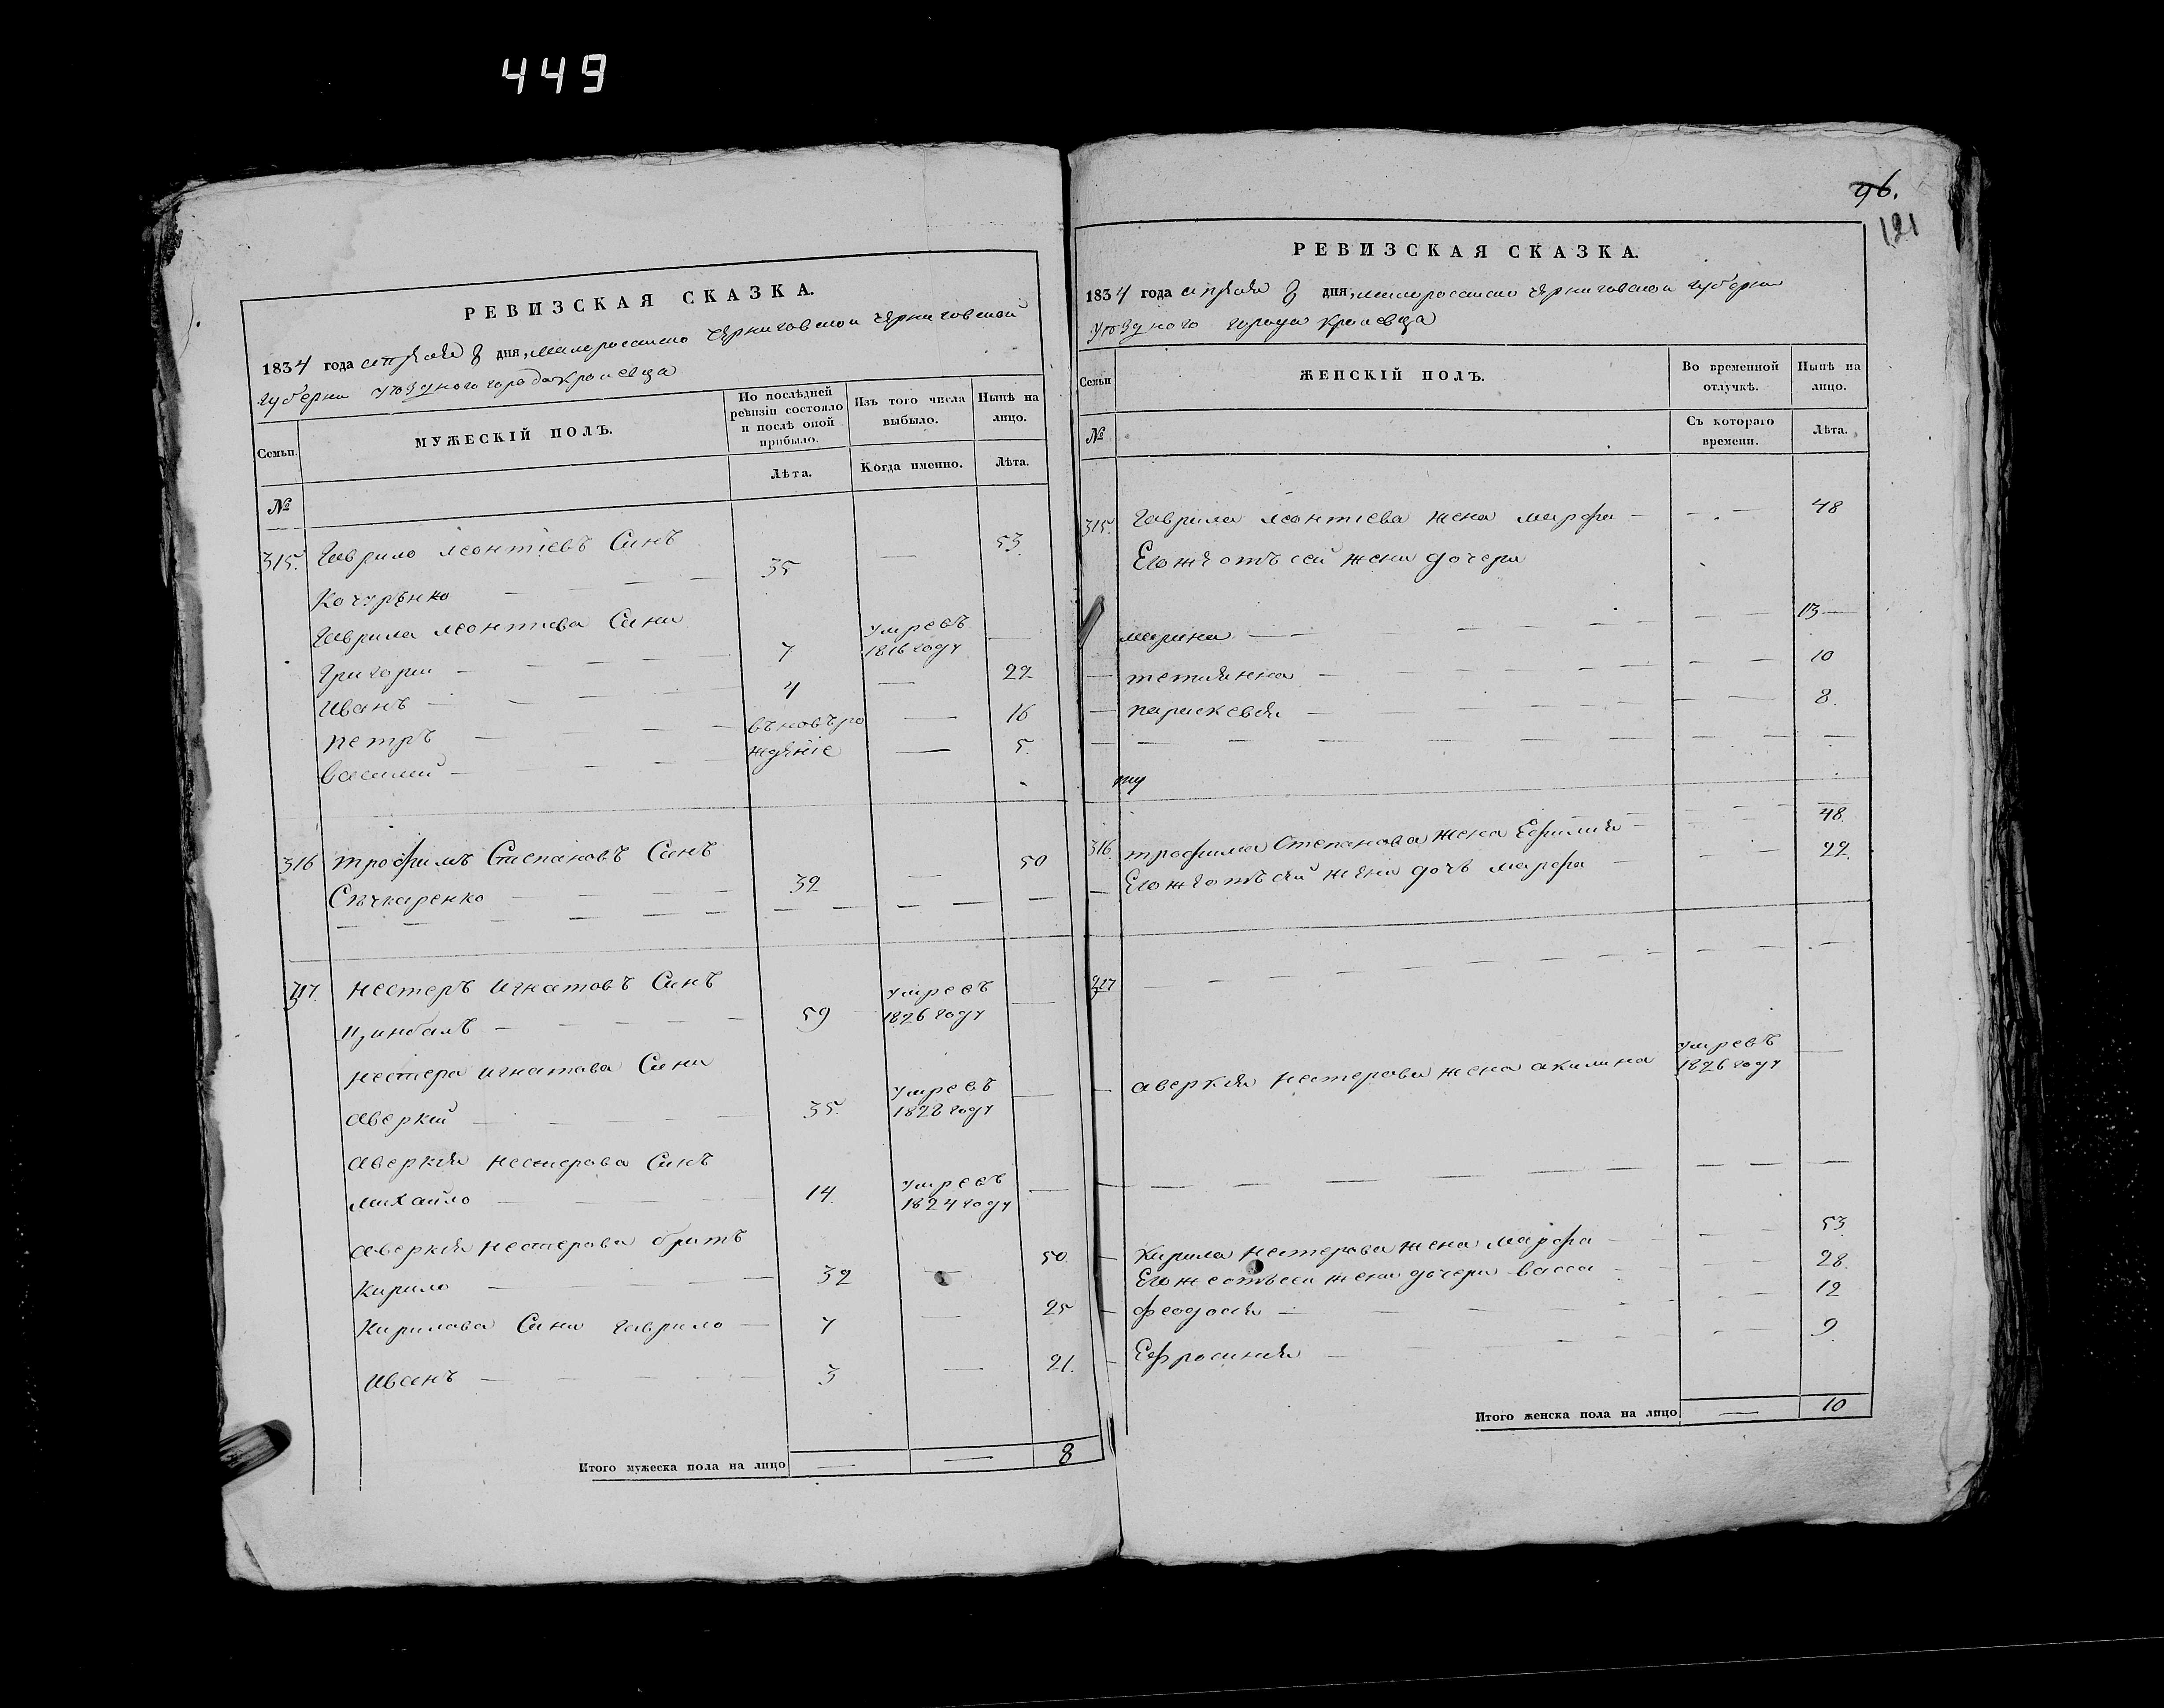 449
РЕВИЗСКАЯ СКАЗКА.
1834 года апреля 8 дня, малоросѣиско Черниговской Черниговской
Губерни уѣздного города Кролевца
Семьи.
МУЖЕСКІЙ ПОЛЪ.
По послѣдней ревизіи состояло и послѣ оной прибыло.
Изъ того числа выбыло.
Нынѣ на лицо.
№
Лѣта.
Когда именно.
Лѣта.
315. Гаврило Леонтіевъ Синъ
Кочуренко — — — 35 — 53.
Гаврила Леонтіева Сини
Григории — — — 7 умревъ 1816 году —
Иванъ — — — 4 — 22
Петръ — — — въновъро — 16
Василий — — — жденіе — 5.
316 Трофимъ Степановъ Синъ
Сѣчкаренко — — — 32 — 50
317. Нестеръ Игнатовъ Синъ
Цинбалъ — — — 59 умревъ 1826 году —
Нестера Игнатова Сини
Аверкий — — — 35. умревъ 1828 году —
Аверкия Нестерова Синъ
Михайло — — — 14. умревъ 1824 году —
Аверкия Нестерова братъ
Кирило — — — 32 — 50
Кирилова Сини Гаврило — 7 — 25
Иванъ — — — 3 — 21.
Итого мужеска пола на лицо — — 8
96.
121
РЕВИЗСКАЯ СКАЗКА.
1834 года апреля 8 дня, малоросѣиско Черниговской Губерни
уѣздного города Кролевца
Семьи
ЖЕНСКІЙ ПОЛЪ.
Во временной отлучкѣ.
Нынѣ на лицо.
№
Съ котораго времени.
Лѣта.
315. Гаврила Леонтіева жена Марфа — — — 48
Его же отъ сей жени дочери
Марина — — — 13 —
Тетиянна — — — 10
Параскевия — — — 8.
316. Трофима Степанова жена Ефимия — — — 48.
Его же отъ сей жени дочъ Марфа — — — 22.
317 — — —
Аверкия Нестерова жена Акилина умревъ 1826 году —
— — —
Кирила Нестерова жена Марфа — — 53.
Его же отъ сей жени дочери Васса — — 28.
Феодосия — — — 12
Ефросиния — — — 9.
Итого женска пола на лицо — 10